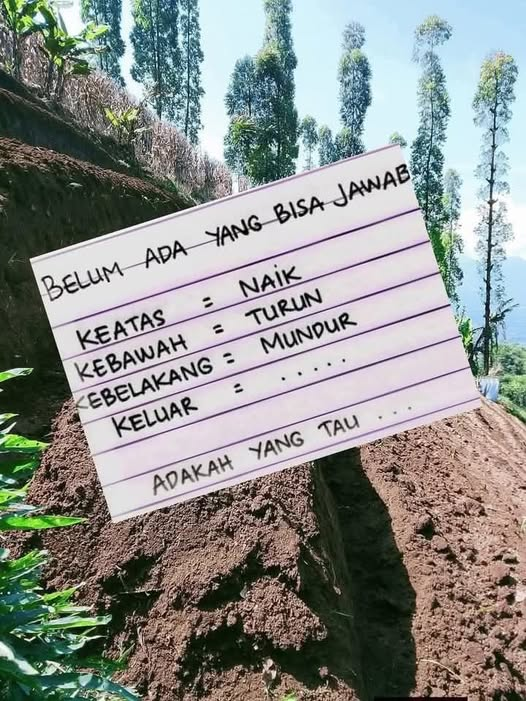 BELUM ADA YANG BISA JAWAB
KEATAS = NAIK
KEBAWAH = TURUN
KEBELAKANG = MUNDUR
KELUAR = .....
ADAKAH YANG TAU ...